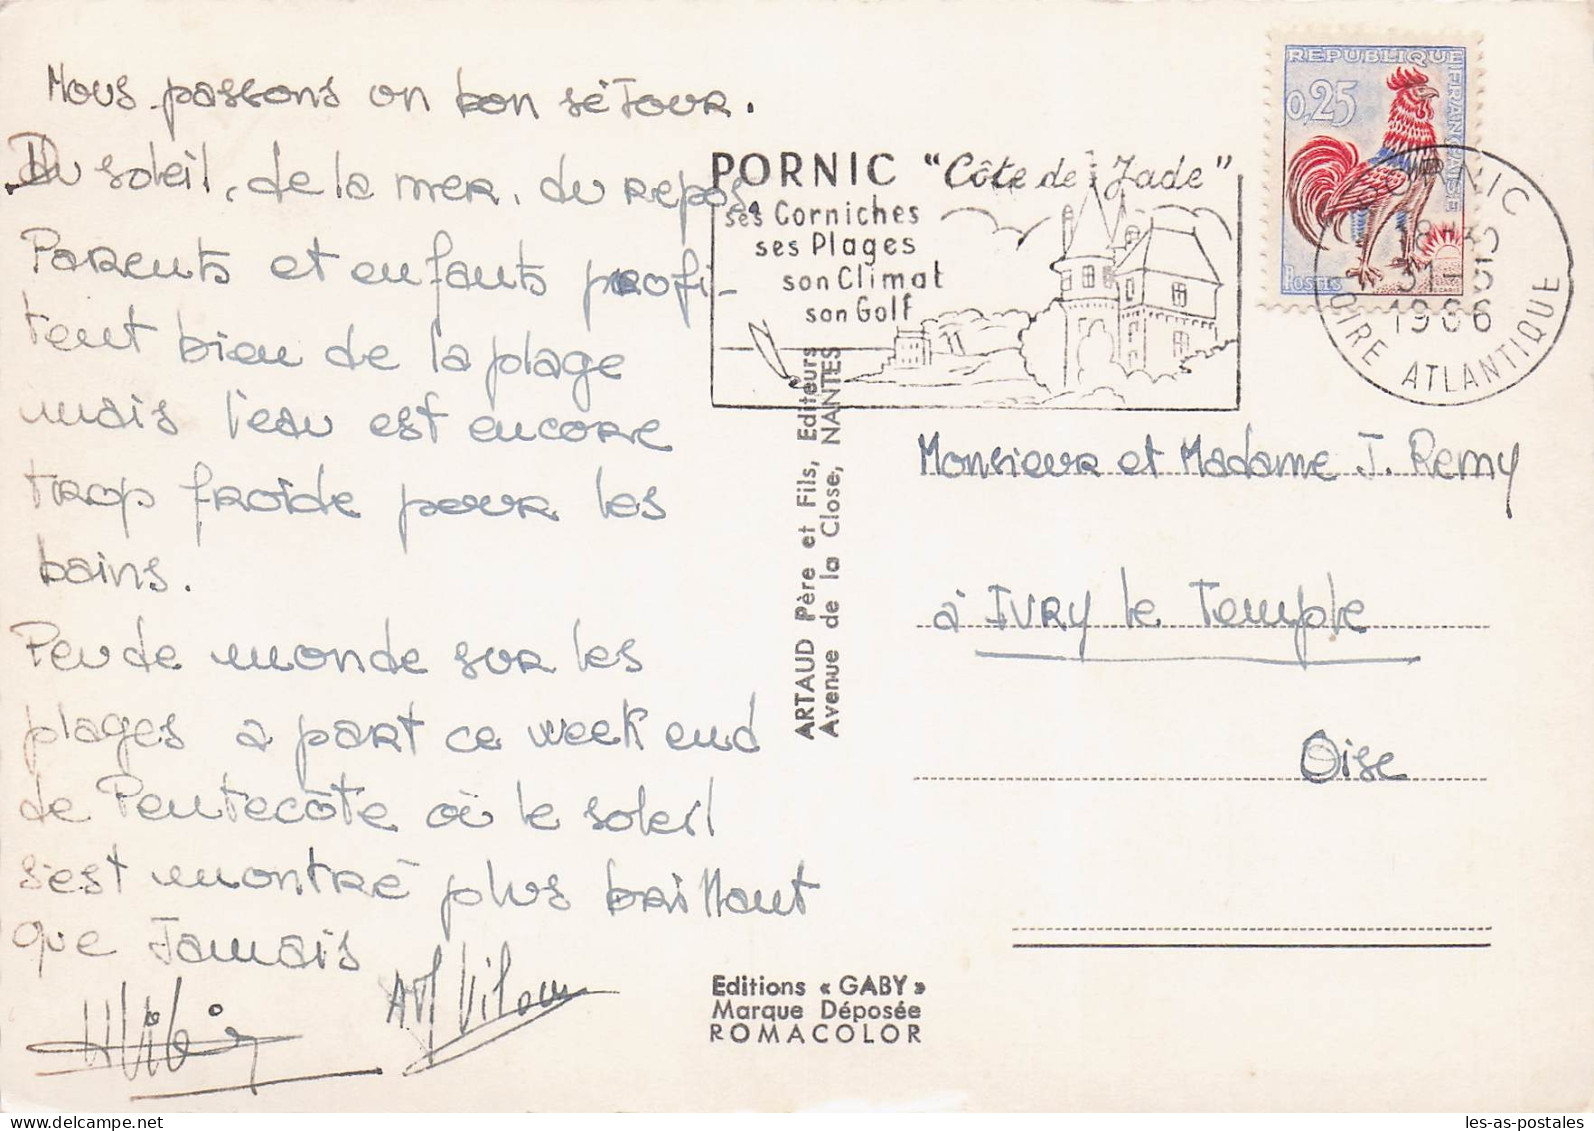 Nous passons un bon séjour.
Du soleil, de la mer, du repos.
Parents et enfants profi-
tent bien de la plage
mais l'eau est encore
trop froide pour les
bains.
Peu de monde sur les
plages a part ce week end
de Pentecôte où le soleil
s'est montré plus brillant
que jamais
PORNIC "Côte de Jade"
ses Corniches
ses Plages
son Climat
son Golf
REPUBLIQUE FRANÇAISE
0,25
POSTES
PORNIC
31-5
1966
LOIRE ATLANTIQUE
ARTAUD Père et Fils, Editeurs
Avenue de la Close, NANTES
Monsieur et Madame J. Remy
à IVRY le Temple
Oise
Editions « GABY »
Marque Déposée
ROMACOLOR
les-as-postales